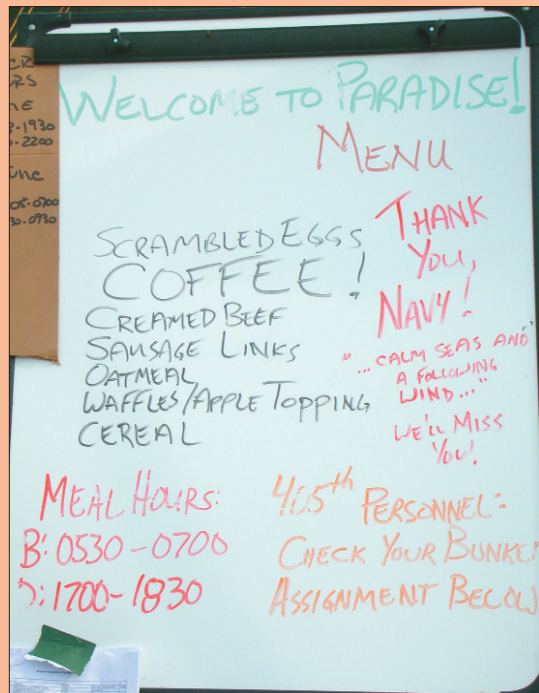 WELCOME TO PARADISE!
MENU
SCRAMBLED EGGS
COFFEE!
CREAMED BEEF
SAUSAGE LINKS
OATMEAL
WAFFLES/APPLE TOPPING
CEREAL
THANK
YOU,
NAVY!
"...CALM SEAS AND
A FOLLOWING
WIND..."
WE'LL MISS
YOU!
MEAL HOURS:
B: 0530-0700
D: 1700-1830
405th PERSONNEL:
CHECK YOUR BUNKER
ASSIGNMENT BELOW
-1930
-2200
05-0700
30-0930